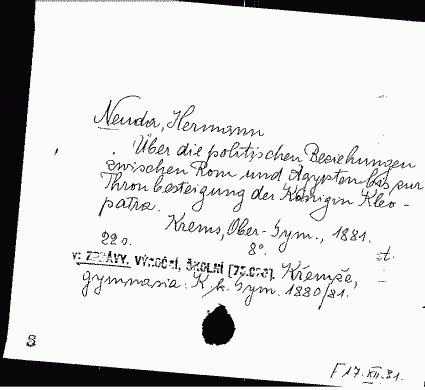 Neuda, Hermann
Über die politischen Beziehungen
zwischen Rom und Ägypten bis zur
Thronbesteigung der Königin Kleo-
patra.
Krems, Ober-Gym., 1881.
22 s. 8°. št.
v: ZPRÁVY, VÝROČNÍ, ŠKOLNÍ Křemže,
gymnasia: K. k. Gym. 1880/81.
S
F 17.XII.81.